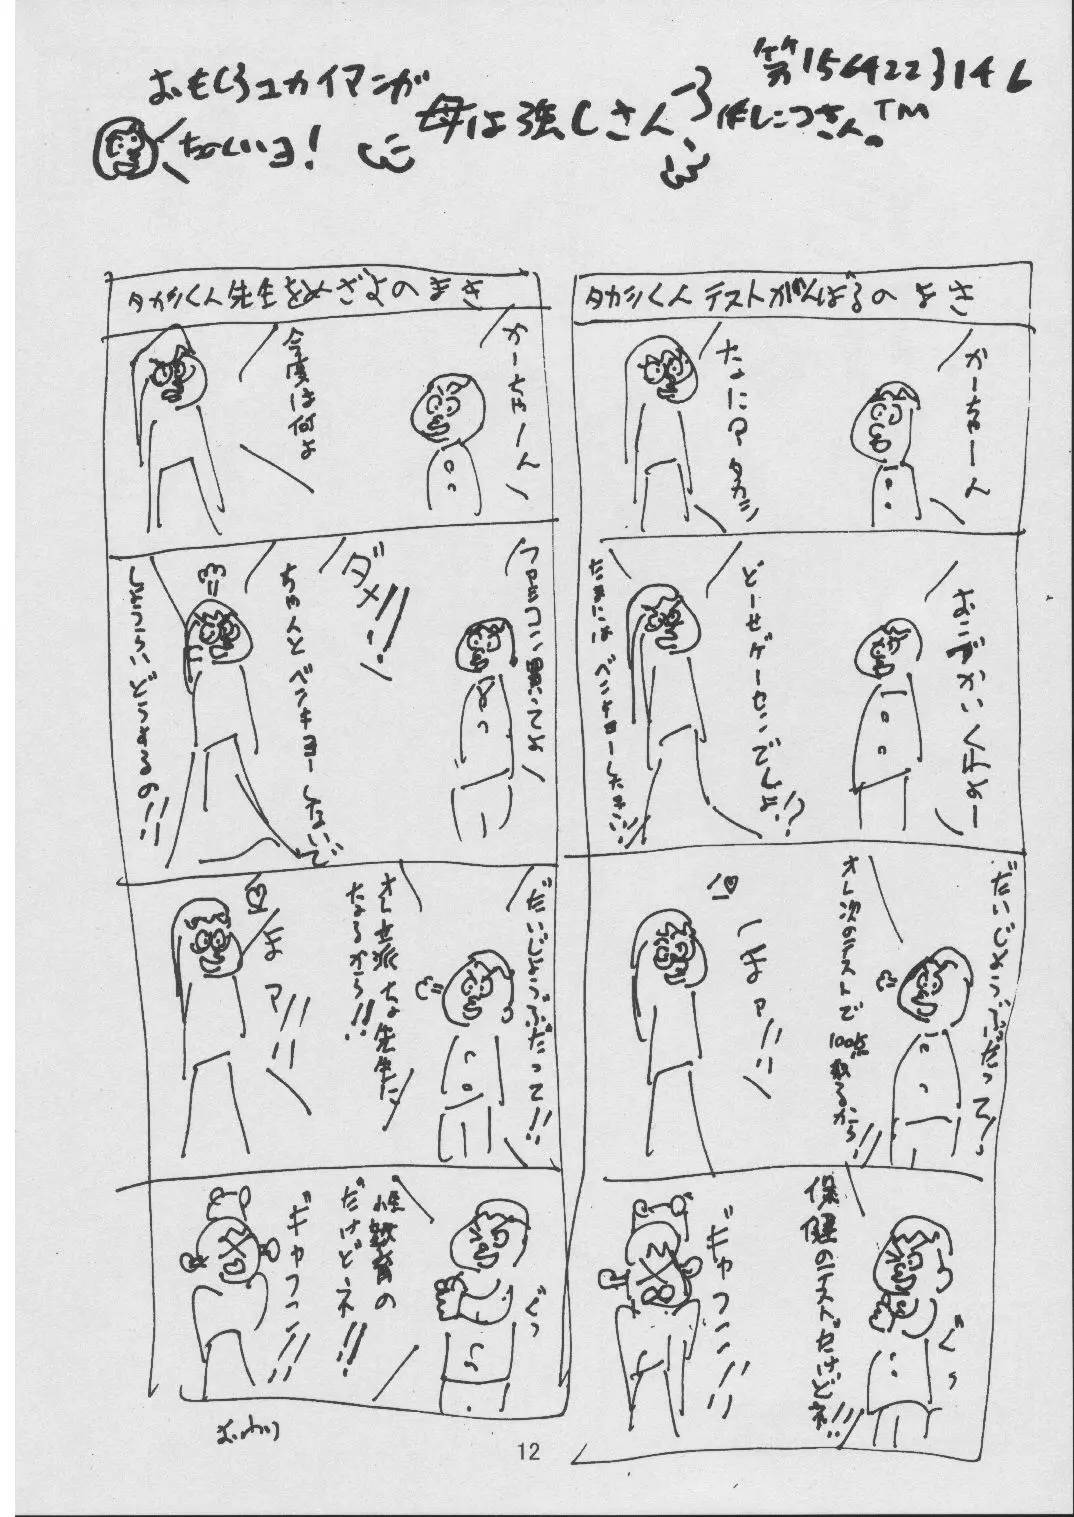 おもしろユカイマンガ
母は強しさん
第1564223146
作しこつさん。TM
ちーくいヨ!
タカシくん テストがんばるの まき
かーちゃーん
なぁに? タカシ
おこづかいくれよー
どーせゲーセンでしょ!?
たまには ベンキョーしなさい!!
だいじょうぶだって!
オレ次のテストで
100点取るから!!
ほァ!!
保健のテストだけどネ!!
ぐっ
ギャフン!!
タカシくん先生をめざすの まき
かーちゃーん
今度は何よ
ファミコン買ってよ
ダメ!!
ちゃんとベンキョーしないで
しょうらいどうするの!!
だいじょうぶだって!!
オレ立派な先生に
なるから!!
ほァ!!
性教育の
だけどネ!!
ぐっ
ギャフン!!
おわり
12